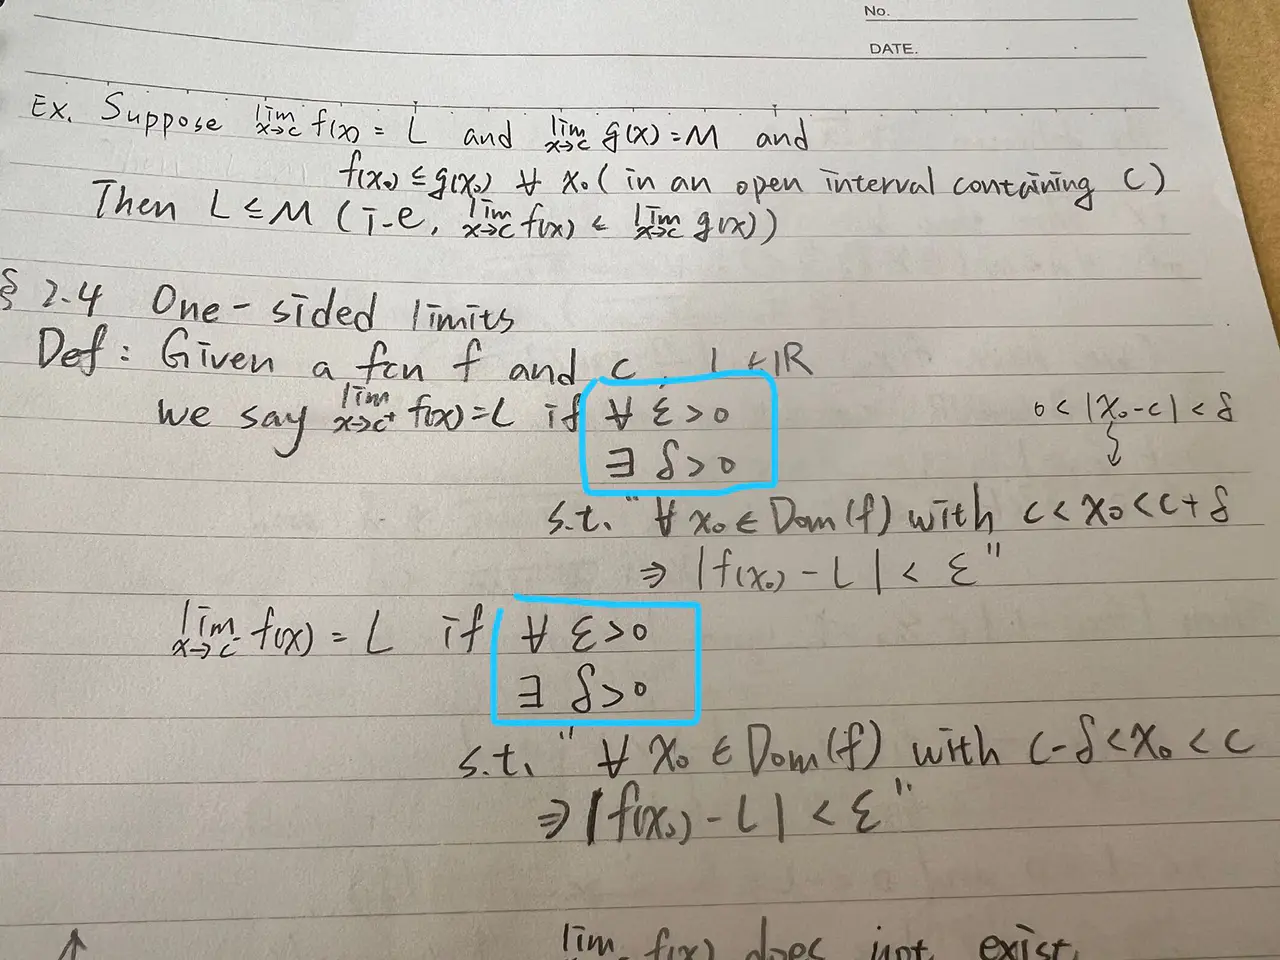 No.
DATE.
Ex. Suppose lim x→c f(x) = L and lim x→c g(x) = M and
f(x₀) ≤ g(x₀) ∀ x₀ (in an open interval containing c)
Then L ≤ M (i-e, lim x→c f(x) ≤ lim x→c g(x))
§ 2-4 One-sided limits
Def: Given a fcn f and c, L ∈ ℝ
we say lim x→c⁺ f(x) = L if ∀ ε > 0
0 < |x₀-c| < δ
∃ δ > 0
s.t. "∀ x₀ ∈ Dom(f) with c < x₀ < c+δ
⇒ |f(x₀) - L| < ε"
lim x→c⁻ f(x) = L if ∀ ε > 0
∃ δ > 0
s.t. "∀ x₀ ∈ Dom(f) with c-δ < x₀ < c
⇒ |f(x₀) - L| < ε"
lim f(x) does not exist.